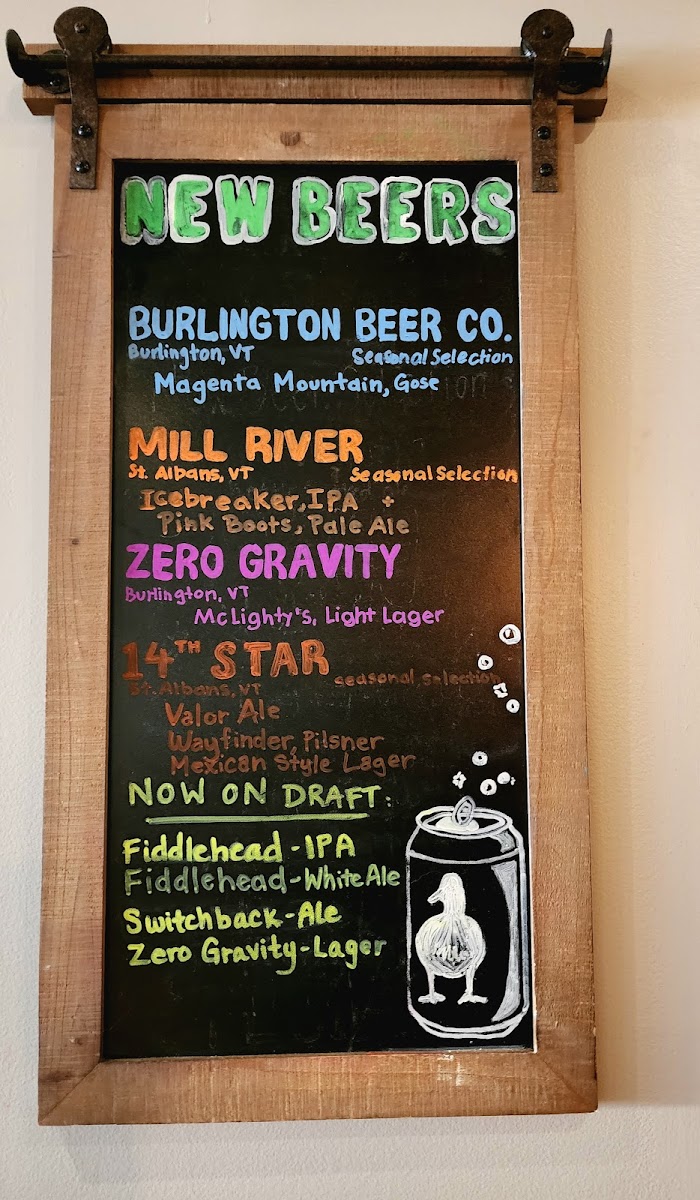 NEW BEERS
BURLINGTON BEER CO.
Burlington, VT Seasonal Selection
Magenta Mountain, Gose
MILL RIVER
St. Albans, VT Seasonal Selection
Icebreaker, IPA +
Pink Boots, Pale Ale
ZERO GRAVITY
Burlington, VT
McLighty's, Light Lager
14TH STAR
seasonal selection
St. Albans, VT
Valor Ale
Wayfinder, Pilsner
Mexican Style Lager
NOW ON DRAFT:
Fiddlehead - IPA
Fiddlehead - White Ale
Switchback - Ale
Zero Gravity - Lager